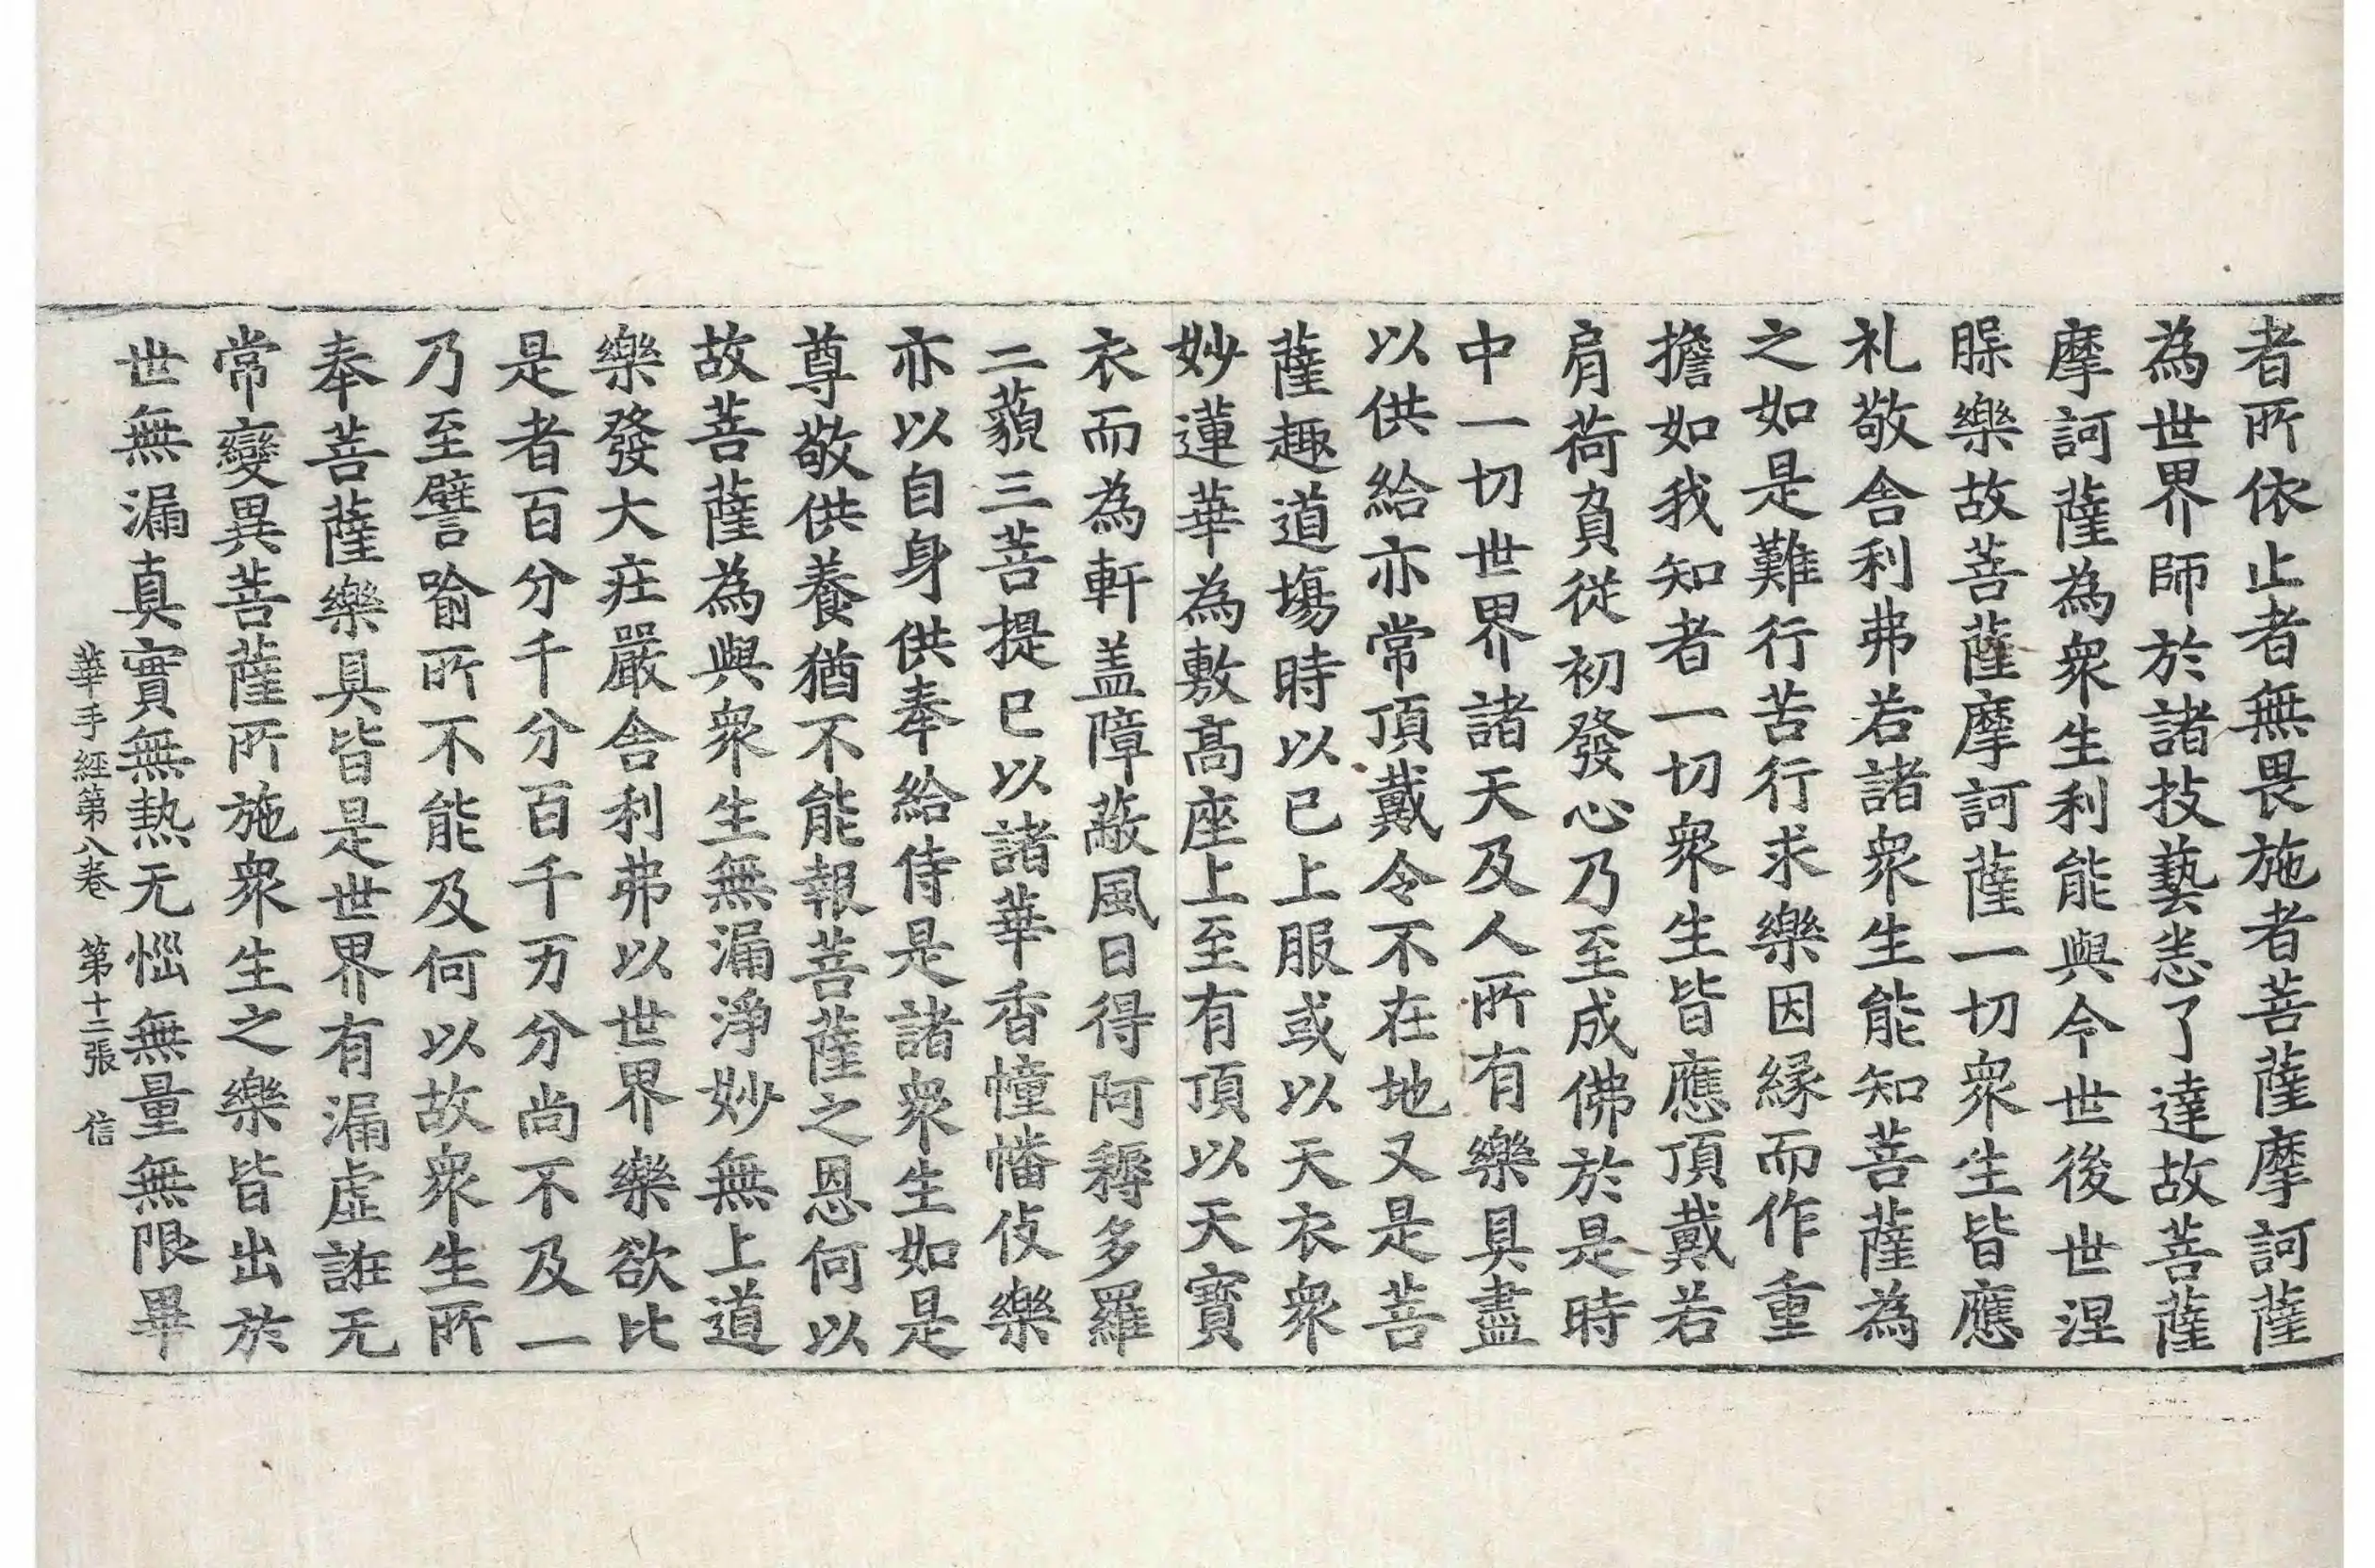 者所依止者無畏施者菩薩摩訶薩
為世界師於諸技藝恙了達故菩薩
摩訶薩為衆生利能與今世後世涅
䏶樂故菩薩摩訶薩一切衆生皆應
礼敬舎利弗若諸衆生能知菩薩為
之如是難行苦行求樂因縁而作重
擔如我知者一切衆生皆應頂戴若
肩荷負從初發心乃至成佛於是時
中一切世界諸天及人所有樂具盡
以供給亦常頂戴令不在地又是菩
薩趣道場時以已上服或以天衣衆
妙蓮華為敷髙座上至有頂以天寳
衣而為軒盖障蔽風日得阿耨多羅
三藐三菩提已以諸華香幢幡伎樂
亦以自身供奉給侍是諸衆生如是
尊敬供養猶不能報菩薩之恩何以
故菩薩為與衆生無漏淨妙無上道
樂發大莊嚴舎利弗以世界樂欲比
是者百分千分百千万分尚不及一
乃至譬喻所不能及何以故衆生所
奉菩薩樂具皆是世界有漏虚誑无
常變異菩薩所施衆生之樂皆出於
世無漏真實無熱无惱無量無限畢
華手經第八卷 第十二張 信